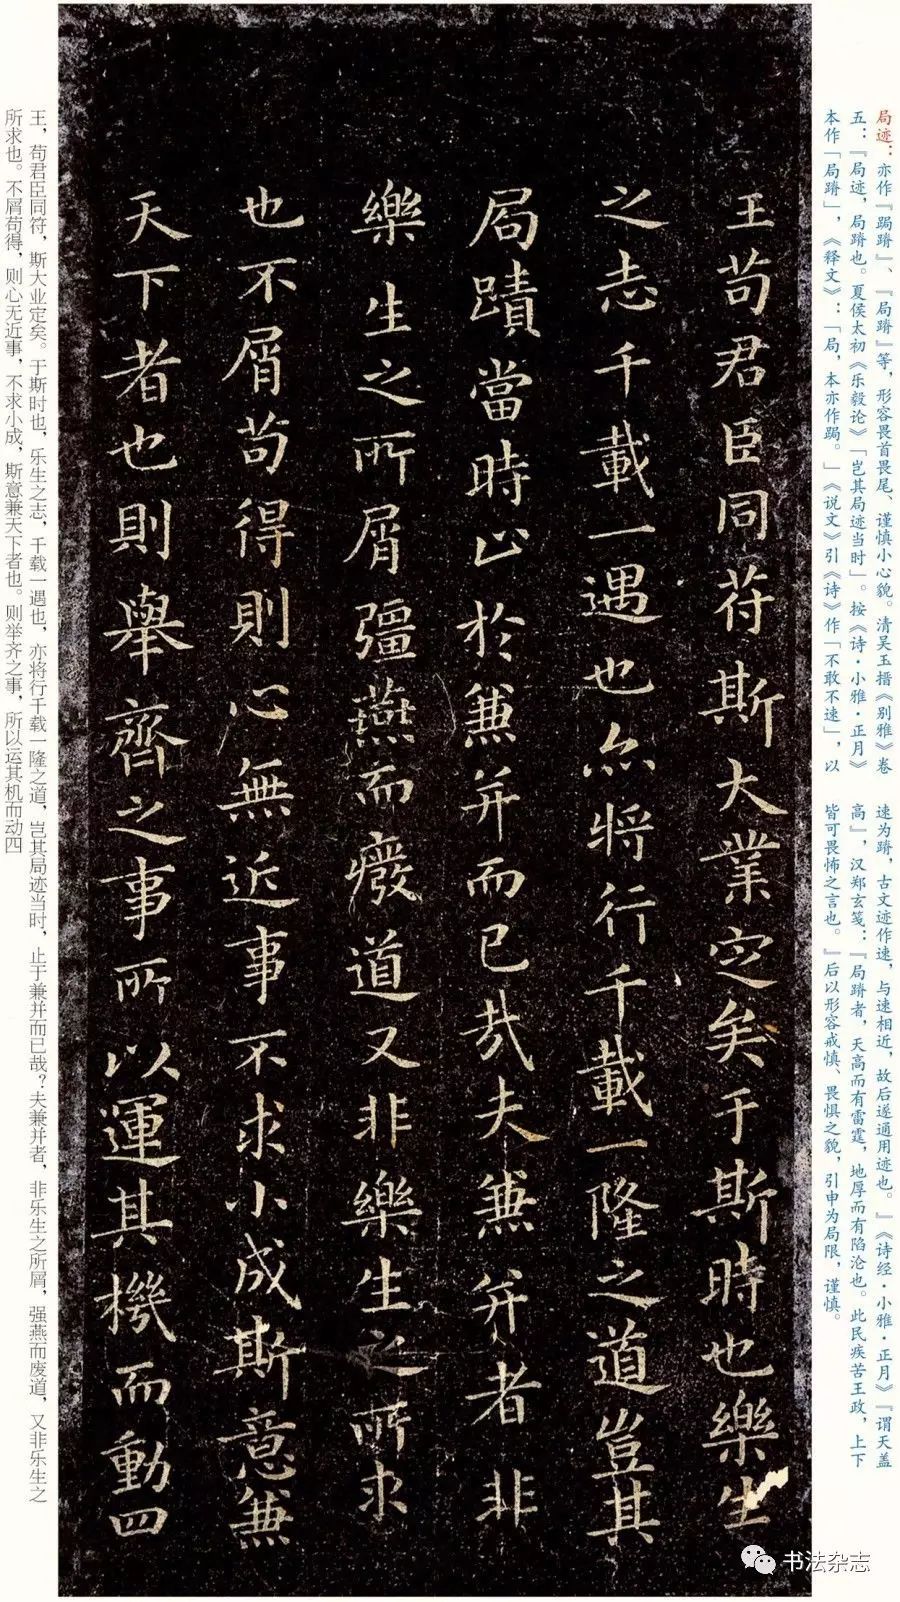 局迹：亦作『跼蹐』、『局蹐』等，形容畏首畏尾、谨慎小心貌。清吴玉搢《别雅》卷
五：『局迹，局蹐也。夏侯太初《乐毅论》「岂其局迹当时」。按《诗·小雅·正月》
本作「局蹐」，《释文》：「局，本亦作跼。」《说文》引《诗》作「不敢不速」，以
速为蹐，古文迹作速，与速相近，故后遂通用迹也。』《诗经·小雅·正月》『谓天盖
高』，汉郑玄笺：『局蹐者，天高而有雷霆，地厚而有陷沦也。此民疾苦王政，上下
皆可畏怖之言也。』后以形容戒慎、畏惧之貌，引申为局限，谨慎。
王苟君臣同苻斯大業定矣于斯時也樂生
之志千載一遇也亦將行千載一隆之道豈其
局蹟當時止於兼并而已哉夫兼并者非
樂生之所屑彊燕而癈道又非樂生之所求
也不屑苟得則心無近事不求小成斯意兼
天下者也則舉齊之事所以運其機而動四
王，苟君臣同符，斯大业定矣。于斯时也，乐生之志，千载一遇也，亦将行千载一隆之道，岂其局迹当时，止于兼并而已哉？夫兼并者，非乐生之所屑，强燕而废道，又非乐生之
所求也。不屑苟得，则心无近事，不求小成，斯意兼天下者也。则举齐之事，所以运其机而动四
书法杂志